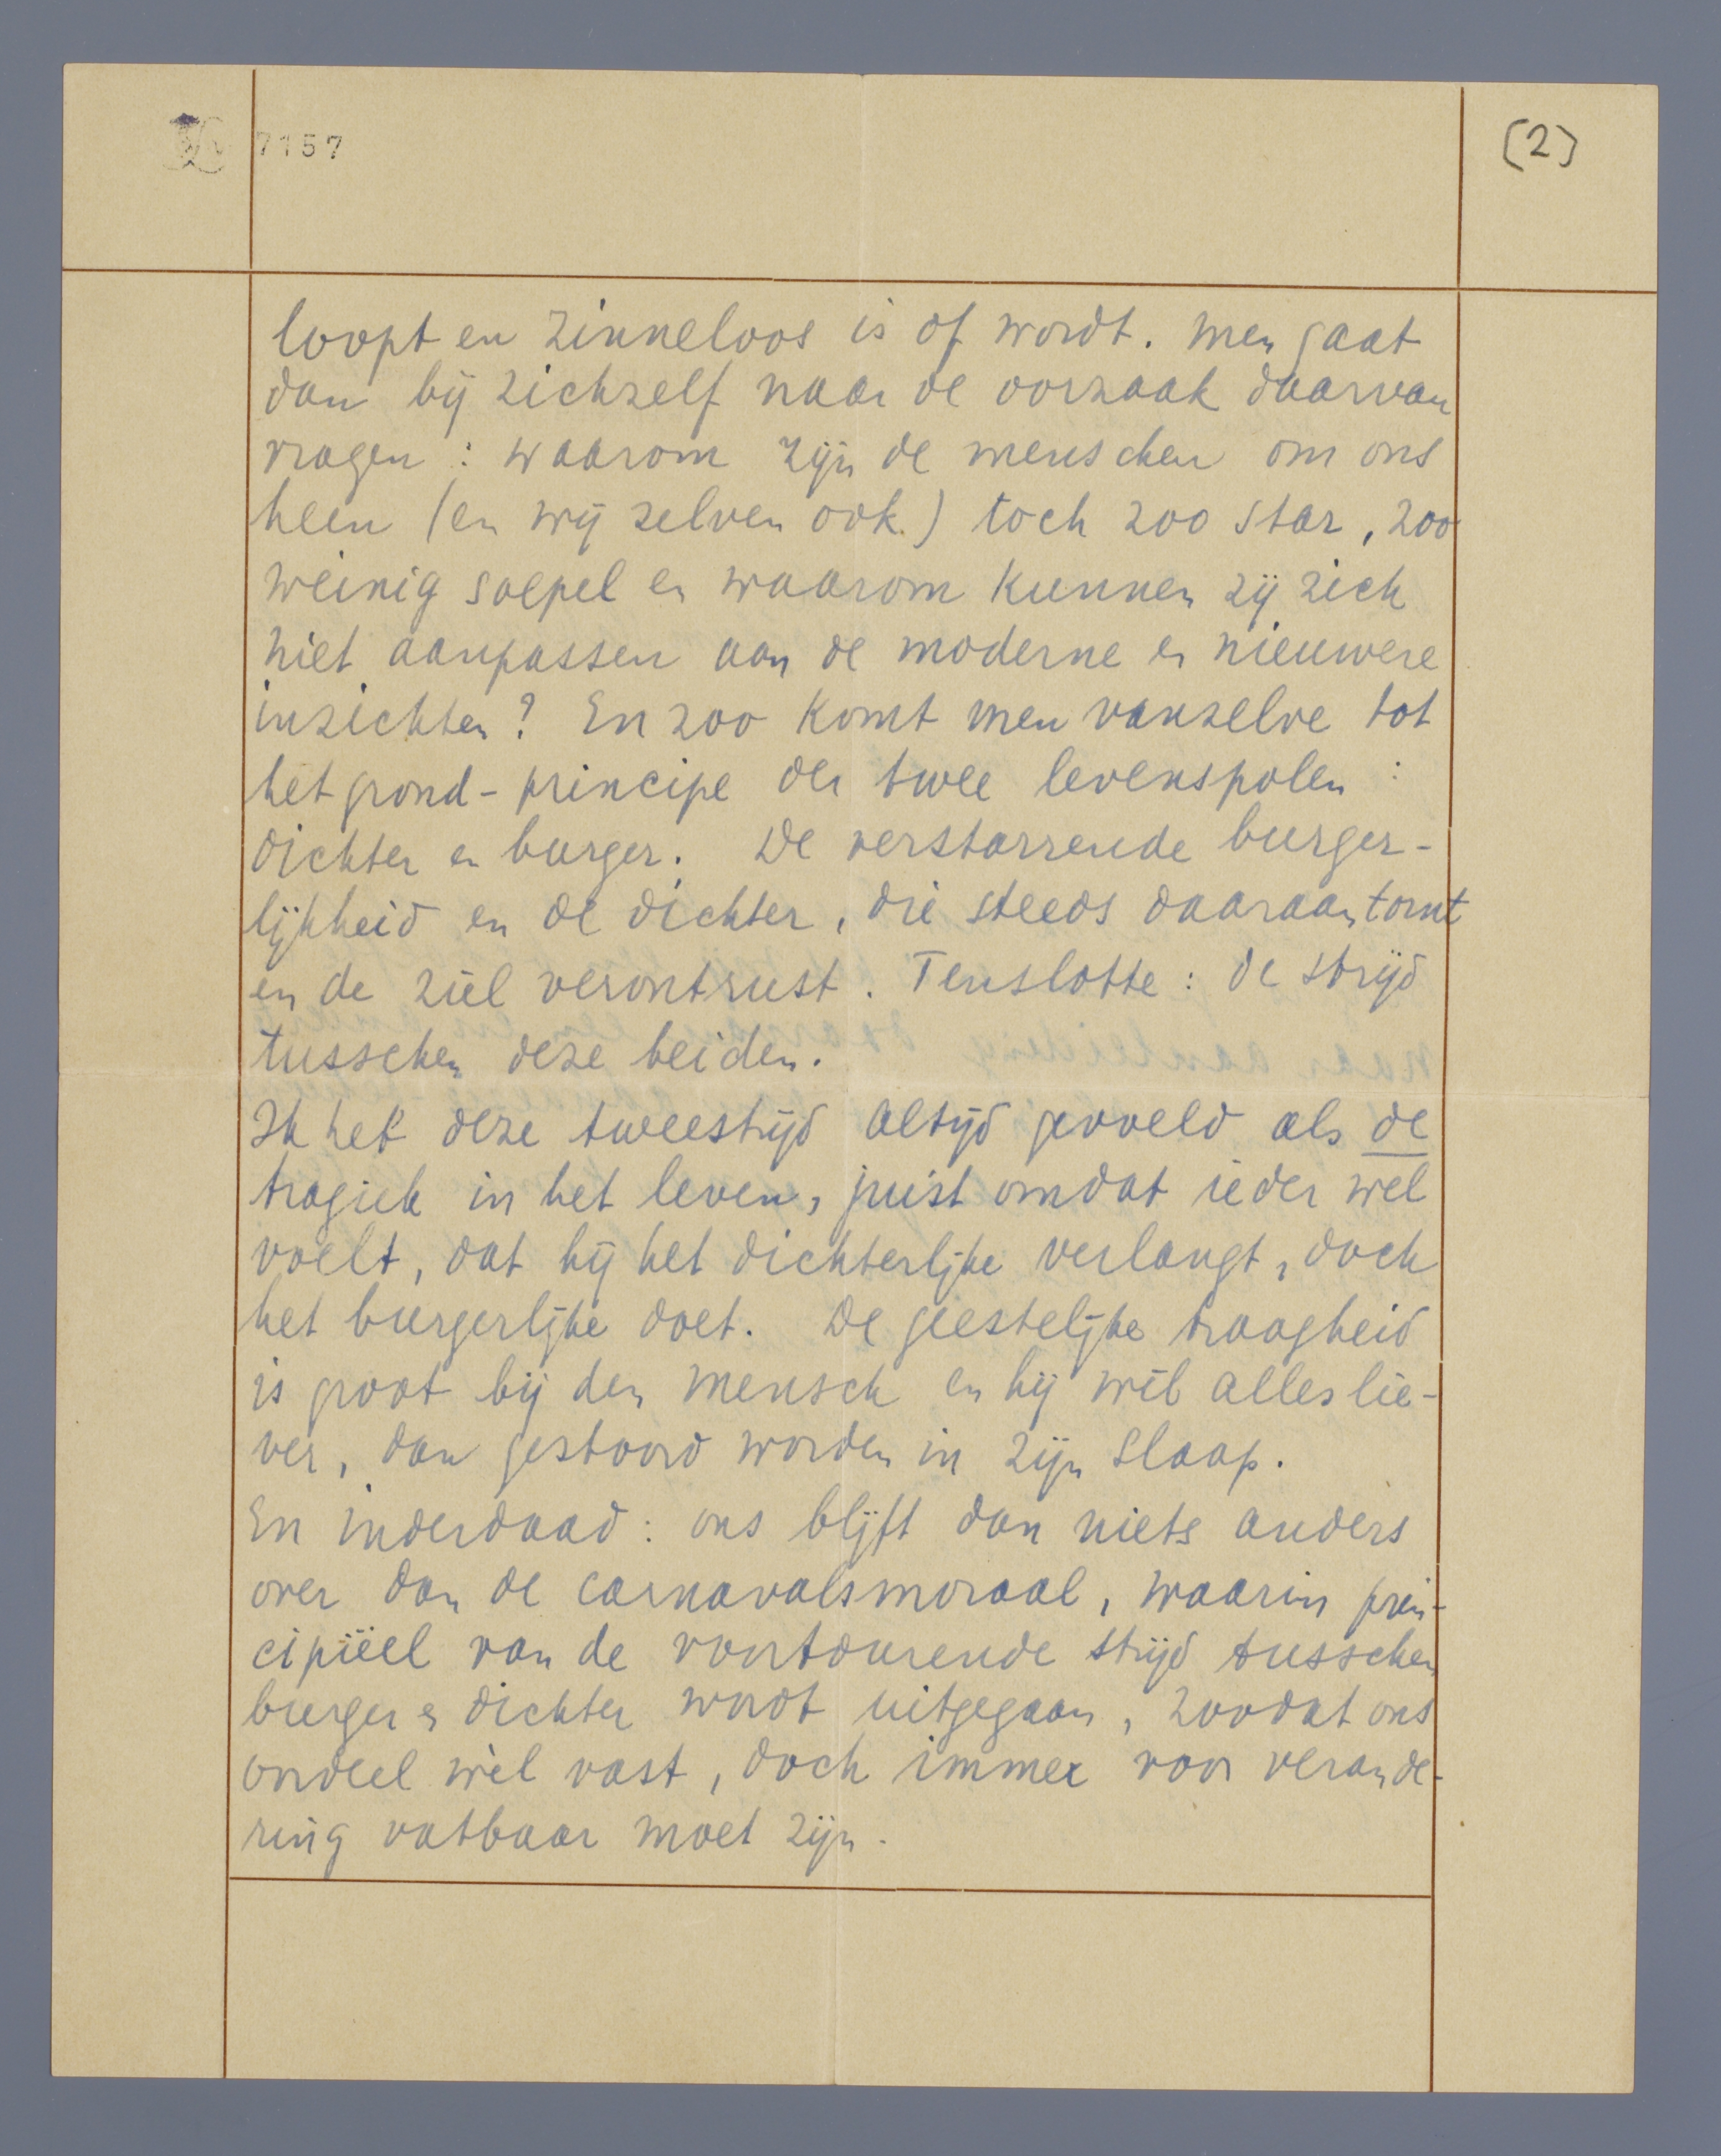 7157
(2)
loopt en zinneloos is of wordt. Men gaat
dan bij zichzelf naar de oorzaak daarvan
vragen: waarom zijn de menschen om ons
heen (en wij zelven ook.) toch zoo star, zoo
weinig soepel en waarom kunnen zij zich
niet aanpassen aan de moderne en nieuwere
inzichten? En zoo komt men vanzelve tot
het grond-principe der twee levenspolen:
dichter en burger. De verstarrende burger-
lijkheid en de dichter, die steeds daaraan tornt
en de ziel verontrust. Tenslotte: de strijd
tusschen deze beiden.
Ik heb deze tweestrijd altijd gevoeld als de
tragiek in het leven, juist omdat ieder wel
voelt, dat hij het dichterlijke verlangt, doch
het burgerlijke doet. De geestelijke traagheid
is groot bij den mensch en hij wil alles lie-
ver, dan gestoord worden in zijn slaap.
En inderdaad: ons blijft dan niets anders
over dan de carnavalsmoraal, waarin prin-
cipiëel van de voortdurende strijd tusschen
burger en dichter wordt uitgegaan, zoodat ons
oordeel wèl vast, doch immer voor verande-
ring vatbaar moet zijn.